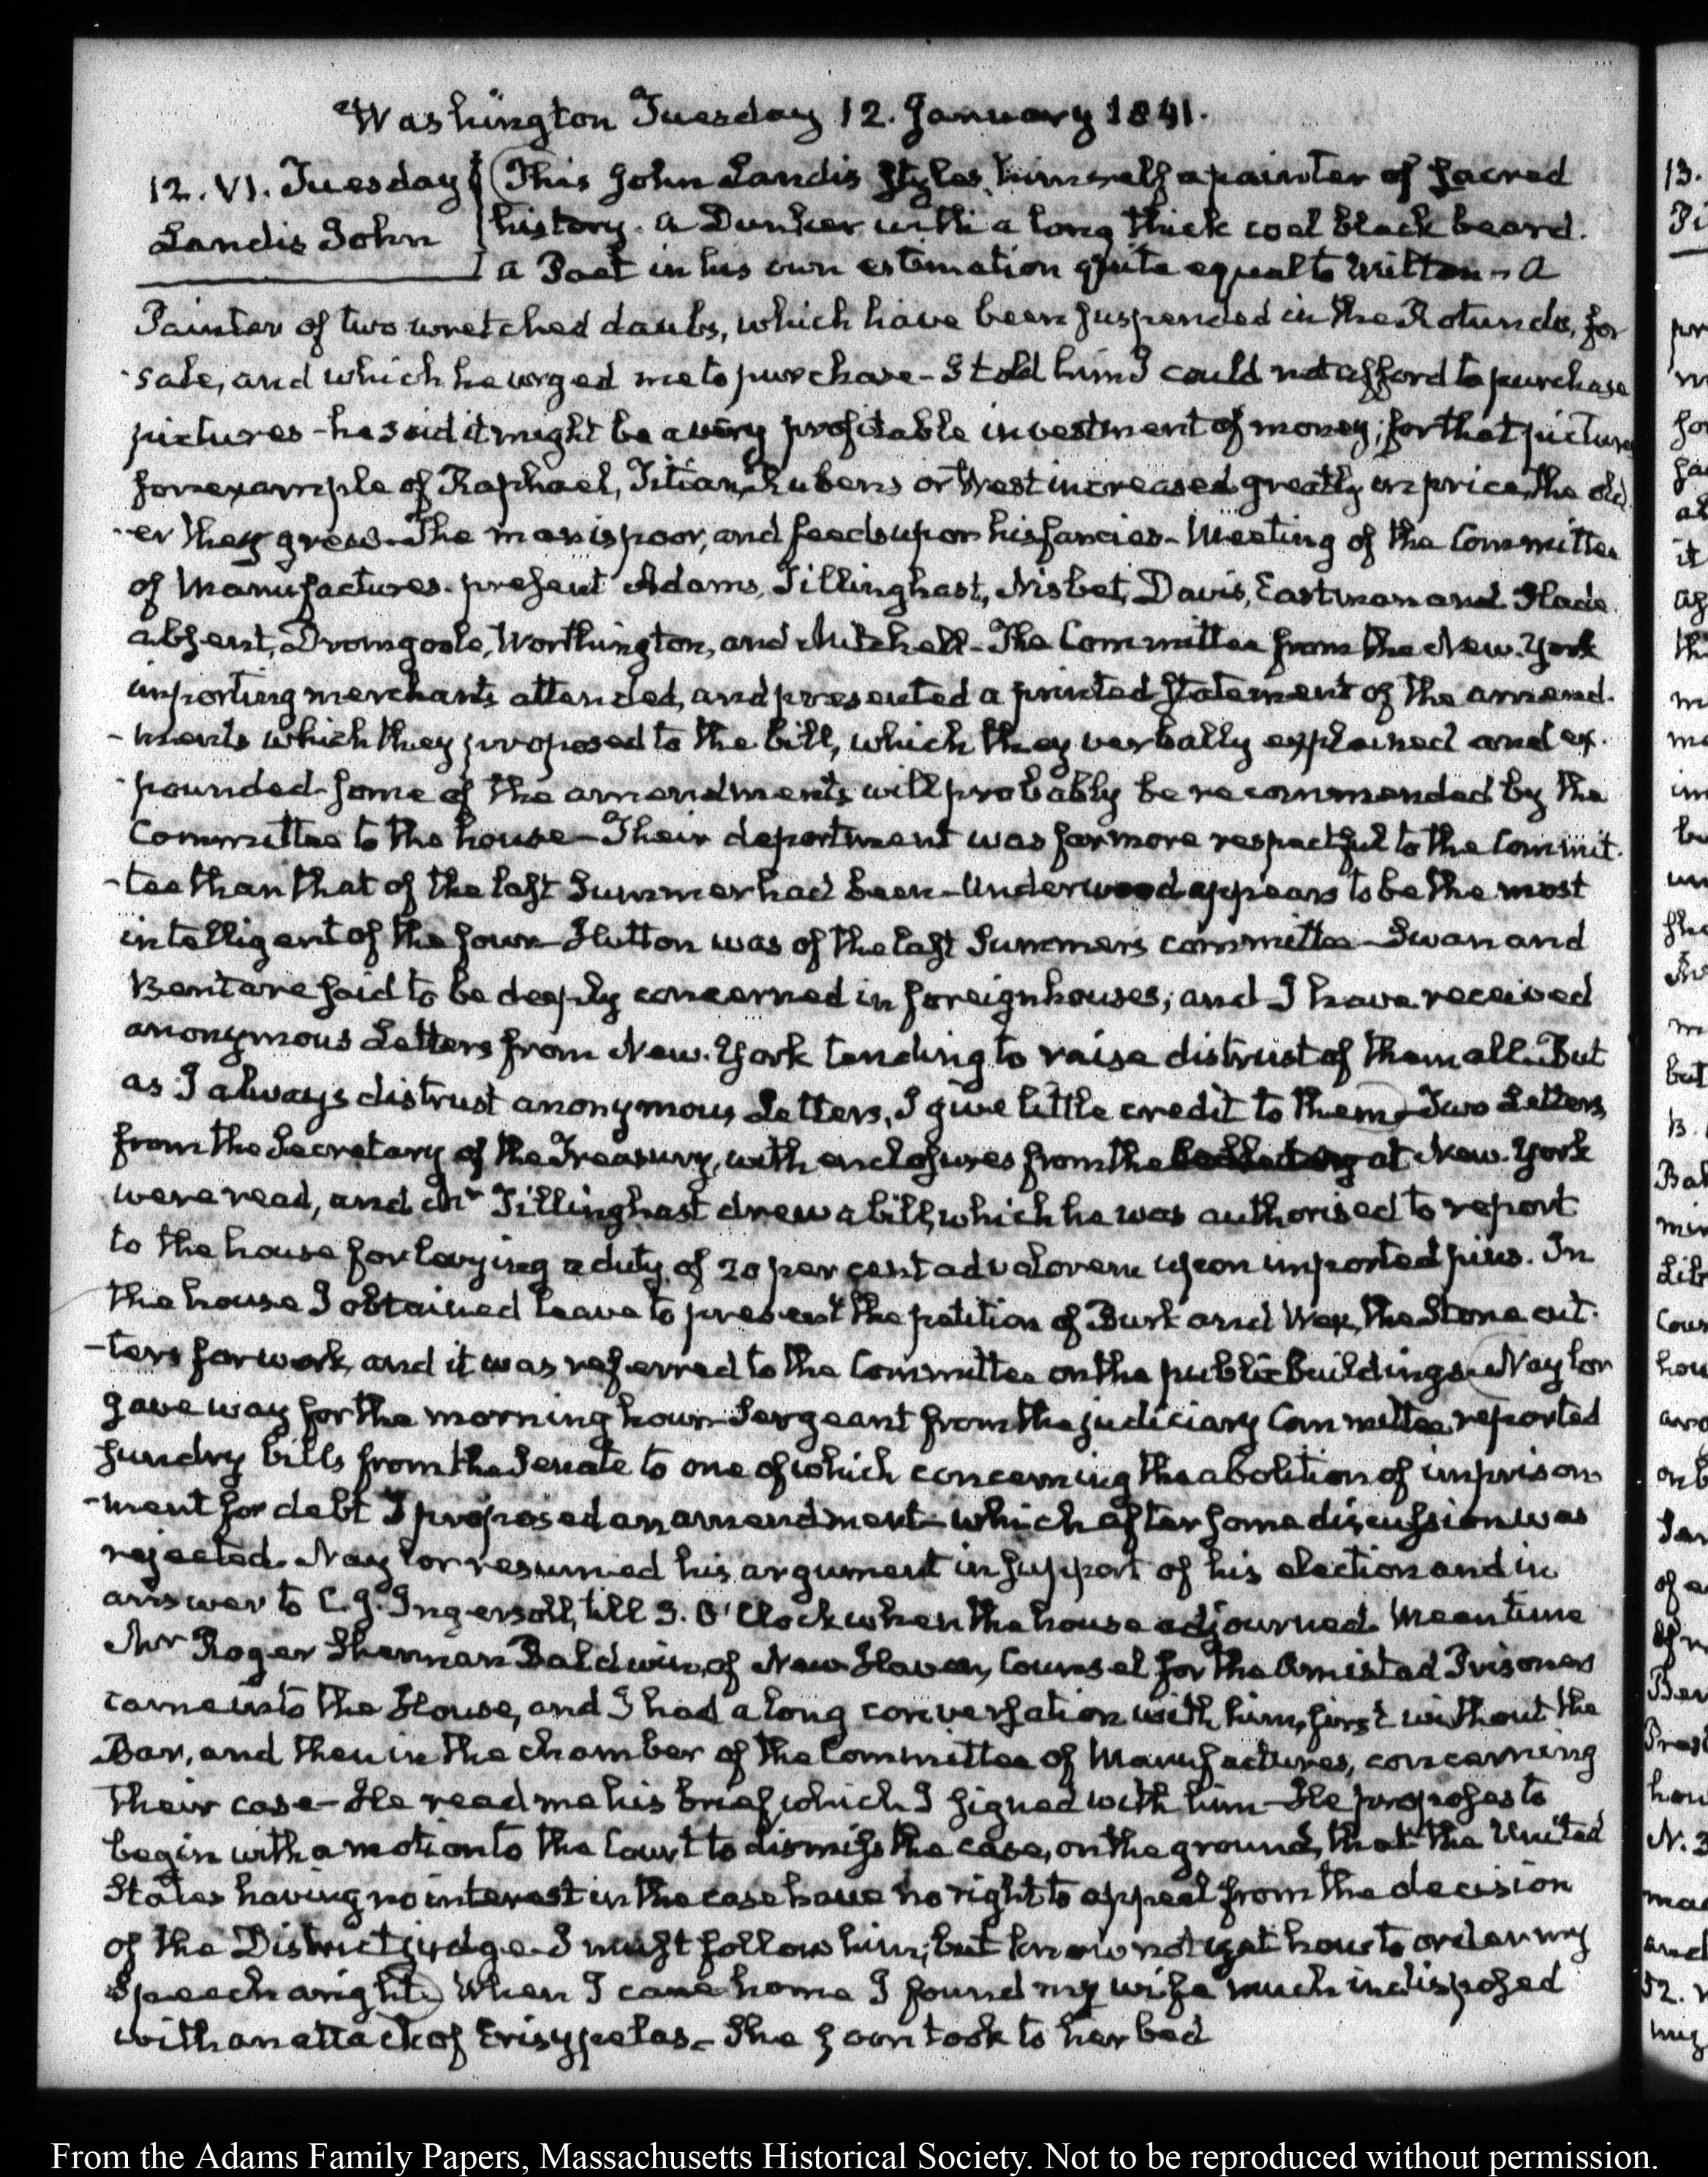 Washington Tuesday 12. January 1841.
12. VI. Tuesday
Landis John
This John Landis styles himself a painter of sacred
history. a Dunker with a long thick coal black beard.
a Poet in his own estimation quite equal to Milton - A
Painter of two wretched daubs, which have been suspended in the Rotunda, for
sale, and which he urged me to purchase - I told him I could not afford to purchase
pictures - he said it might be a very profitable investment of money; for that pictures
for example of Raphael, Titian, Rubens or West increased greatly in price, the old
-er they grew. The man is poor, and feeds upon his fancies - Meeting of the Committee
of Manufactures. present Adams, Tillinghast, Nisbet, Davis, Eastman and Slade
absent, Dromgoole, Worthington, and Mitchell - The Committee from the New-York
importing merchants attended, and presented a printed statement of the amend-
-ments which they proposed to the bill, which they verbally explained and ex-
-pounded - some of the amendments will probably be recommended by the
Committee to the house - Their deportment was far more respectful to the Commit-
-tee than that of the last Summer had been - Underwood appears to be the most
intelligent of the four - Hutton was of the last Summers committee - Swan and
Bent are said to be deeply concerned in foreign houses; and I have received
anonymous Letters from New-York tending to raise distrust of them all. But
as I always distrust anonymous Letters, I give little credit to them - Two Letters
from the Secretary of the Treasury, with enclosures from the at New-York
were read, and Mr Tillinghast drew a bill, which he was authorised to report
to the house for levying a duty of 20 per cent ad valorem upon imported pins. In
the house I obtained leave to present the petition of Burk and Way, the Stone cut-
-ters for work, and it was referred to the Committee on the public buildings. Naylor
gave way for the morning hour - Sergeant from the judiciary Committee reported
sundry bills from the Senate to one of which concerning the abolition of imprison-
-ment for debt I proposed an amendment - which after some discussion was
rejected. Naylor resumed his argument in support of his election and in
answer to C. J. Ingersoll, till 3. O'Clock when the house adjourned. Meantime
Mr Roger Sherman Baldwin, of New-Haven, Counsel for the Amistad Prisoners
came into the House, and I had a long conversation with him, first without the
Bar, and then in the chamber of the Committee of Manufactures, concerning
their case - He read me his brief which I signed with him - He proposes to
begin with a motion to the Court to dismiss the case, on the ground, that the United
States having no interest in the case have no right to appeal from the decision
of the District judge - I must follow him; but know not yet how to order my
speech aright. When I came home I found my wife much indisposed
with an attack of Erisypelas - She soon took to her bed
From the Adams Family Papers, Massachusetts Historical Society. Not to be reproduced without permission.